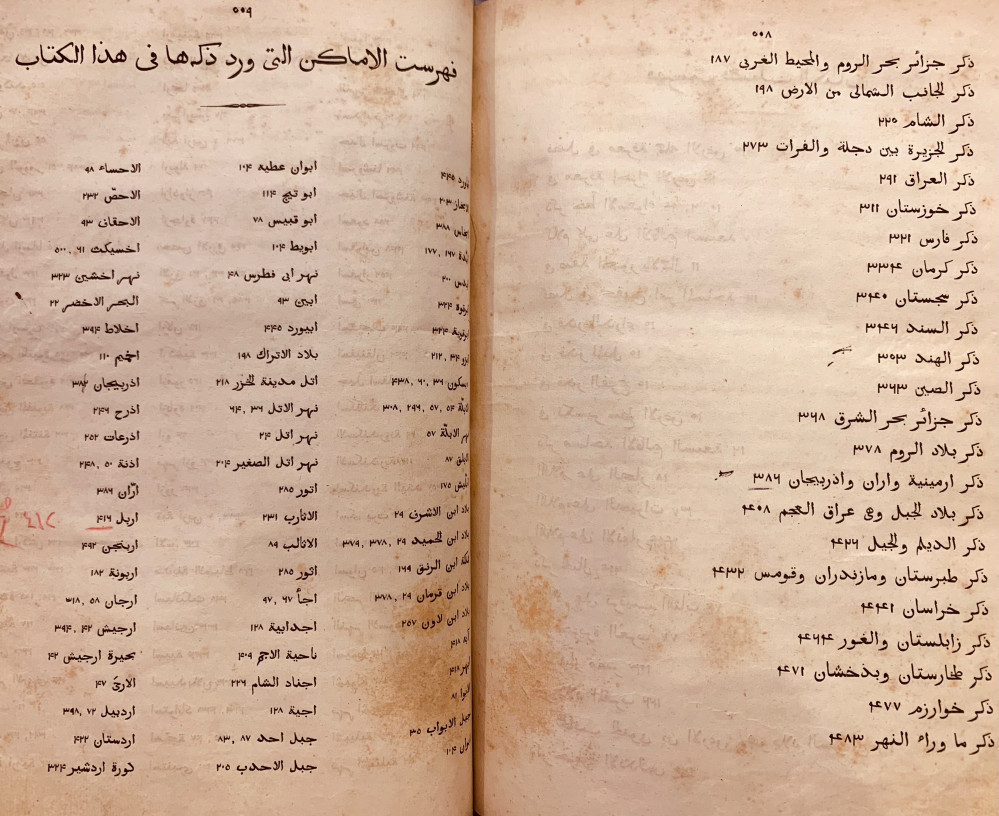 ٥٠٨
ذكر جزائر بحر الروم والمحيط الغربى ١٨٧
ذكر الجانب الشمالى من الارض ١٩٨
ذكر الشام ٢٢٥
ذكر الجزيرة بين دجلة والفرات ٢٧٣
ذكر العراق ٢٩١
ذكر خوزستان ٣١١
ذكر فارس ٣٢١
ذكر كرمان ٣٣٤
ذكر سجستان ٣٤٠
ذكر السند ٣٤٦
ذكر الهند ٣٥٣
ذكر الصين ٣٦٣
ذكر جزائر بحر الشرق ٣٦٨
ذكر بلاد الروم ٣٧٨
ذكر ارمينية واران واذربيجان ٣٨٦
ذكر بلاد الجبل وهى عراق العجم ٤٠٨
ذكر الديلم والجيل ٤٢٦
ذكر طبرستان ومازندران وقومس ٤٣٢
ذكر خراسان ٤٤١
ذكر زابلستان والغور ٤٦٤
ذكر طخارستان وبذخشان ٤٧١
ذكر خوارزم ٤٧٧
ذكر ما وراء النهر ٤٨٣
٥٠٩
فهرست الاماكن التى ورد ذكرها فى هذا الكتاب
٤٤٥
٢٠٣
٣٨٨
١٦٧ ,١٧٧
٢٠٠
ابرقوة ٣٢٤
ابرقوية ٣٢٤
٣٤ ,٢١٢
ابسكون ٣٦ ,٦٠ ,٤٣٨
الابلّة ٥٤ ,٥٧ ,٢٩٦ ,٣٠٨
نهر الابلّة ٥٧
الابلق ٨٧
١٧٥
بلاد ابن الاشرف ٢٩
بلاد ابن الحميد ٢٩ ,٣٧٨ ,٣٧٩
ابن الرنق ١٦٩
بلاد ابن قرمان ٢٩ ,٣٧٨
بلاد ابن لاون ٢٥٧
٤١٨
ابهر ٤١٨
الابوا ٨١
جبل الابواب ٣٥
١٠٤
ابوان عطية ١٠٤
ابو تيج ١١٤
ابو قبيس ٧٨
ابويط ١٠٤
نهر ابى فطرس ٤٨
ابين ٩٣
ابيورد ٤٤٥
بلاد الاتراك ١٩٨
اتل مدينة الخزر ٢١٨
نهر الاتل ٣٦ ,٦٤
نهر اتل ٢٤
نهر اتل الصغير ٢٠٤
اتور ٢٨٥
الاثارب ٢٣١
الاثالب ٨٩
اثور ٢٨٥
اجأ ٦٧ ,٩٧
اجدابية ١٢٨
ناحية الاجم ٤٠٩
اجناد الشام ٢٢٦
اجية ١٢٨
جبل احد ٨٧ ,٨٣
جبل الاحدب ٢٠٥
الاحساء ٩٨
الاحصّ ٢٣٢
الاحقاف ٩٣
اخسيكث ٦١ ,٥٠٠
نهر اخشين ٣٢٣
البحر الاخضر ٢٢
اخلاط ٣٩٤
اخميم ١١٠
اذربيجان ٣٨٦
اذرح ٢٤٦
اذرعات ٢٥٢
اذنة ٥٠ ,٢٤٨
ارّان ٣٨٦
اربل ٤١٦ ٤١٢
اربنجن ٤٩٢
اربونة ١٨٢
ارجان ٥٨ ,٣١٨
ارجيش ٤٢ ,٣٩٤
بحيرة ارجيش ٤٢
الارىّ ٤٧
اردبيل ٧٢ ,٣٩٨
اردستان ٤٢٢
كورة اردشير ٣٢٤